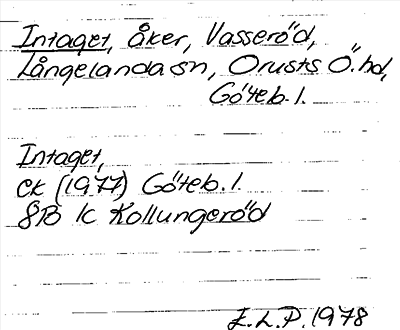 Intaget, åker, Vasseröd,
Långelanda sn, Orusts Ö. hd,
Göteb. l.
Intaget,
ek (1977) Göteb. l.
8B 1c Kollungeröd
E.L.P. 1978